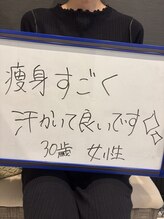 痩身すごく
汗かいて良いです☆
30歳 女性